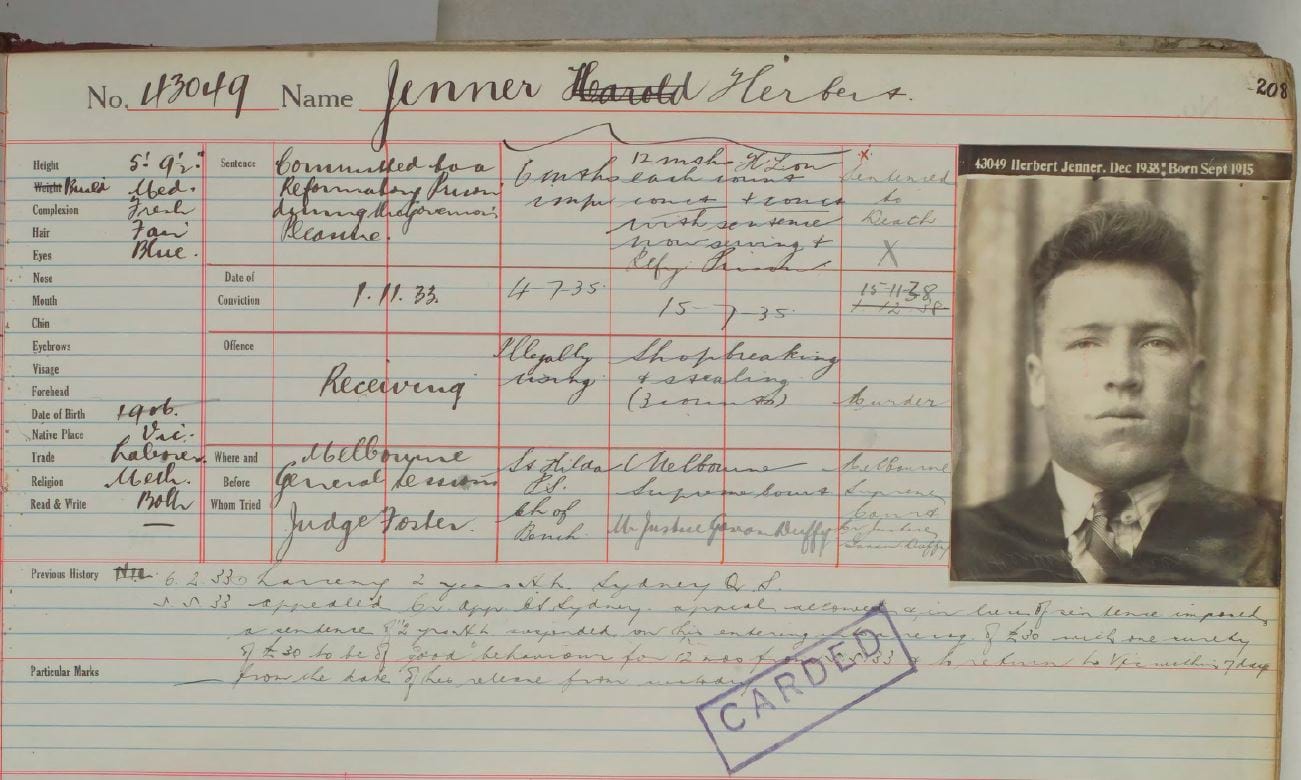 208
No. 43049 Name Jenner Harold Herbert.
43049 Herbert Jenner. Dec 1938: Born Sept 1915
Height 5' 9½"
Weight Build Med.
Complexion Fresh
Hair Fair
Eyes Blue.
Nose
Mouth
Chin
Eyebrows
Visage
Forehead
Date of Birth 1906.
Native Place Vic.
Trade Laborer.
Religion Meth.
Read & Write Both
Sentence
Committed to a
Reformatory Prison
during the Governor's
Pleasure.
6 mths
impr
12 mths H. Lab
each count
conct + conct
with sentence
now serving +
Refy. Prison
Sentenced
to
Death
X
Date of
Conviction
1.11.33.
4-7-35.
15-7-35.
15-11-38
1-12-38
Offence
Receiving
Illegally
using
Shopbreaking
+ stealing
(3 counts)
Murder
Where and
Before
Whom Tried
Melbourne
General Sessions
Judge Foster.
St Kilda
P.S.
Ch of
Bench.
Melbourne
Supreme Court
Mr Justice Gavan Duffy
Melbourne
Supreme
Court
Mr Justice
Gavan Duffy
Previous History Nil. 6.2.33 Larceny 2 years H.L. Sydney Q.S.
5.5.33 appealed Cr. App. Ct Sydney. appeal allowed & in lieu of sentence imposed
a sentence of 2 yrs H.L. suspended on his entering recog. of £30 with one surety
of £30 to be of good behaviour for 12 mos from 5.5.33 & to return to Vic within 7 days
Particular Marks
from the date of his release from custody
CARDED